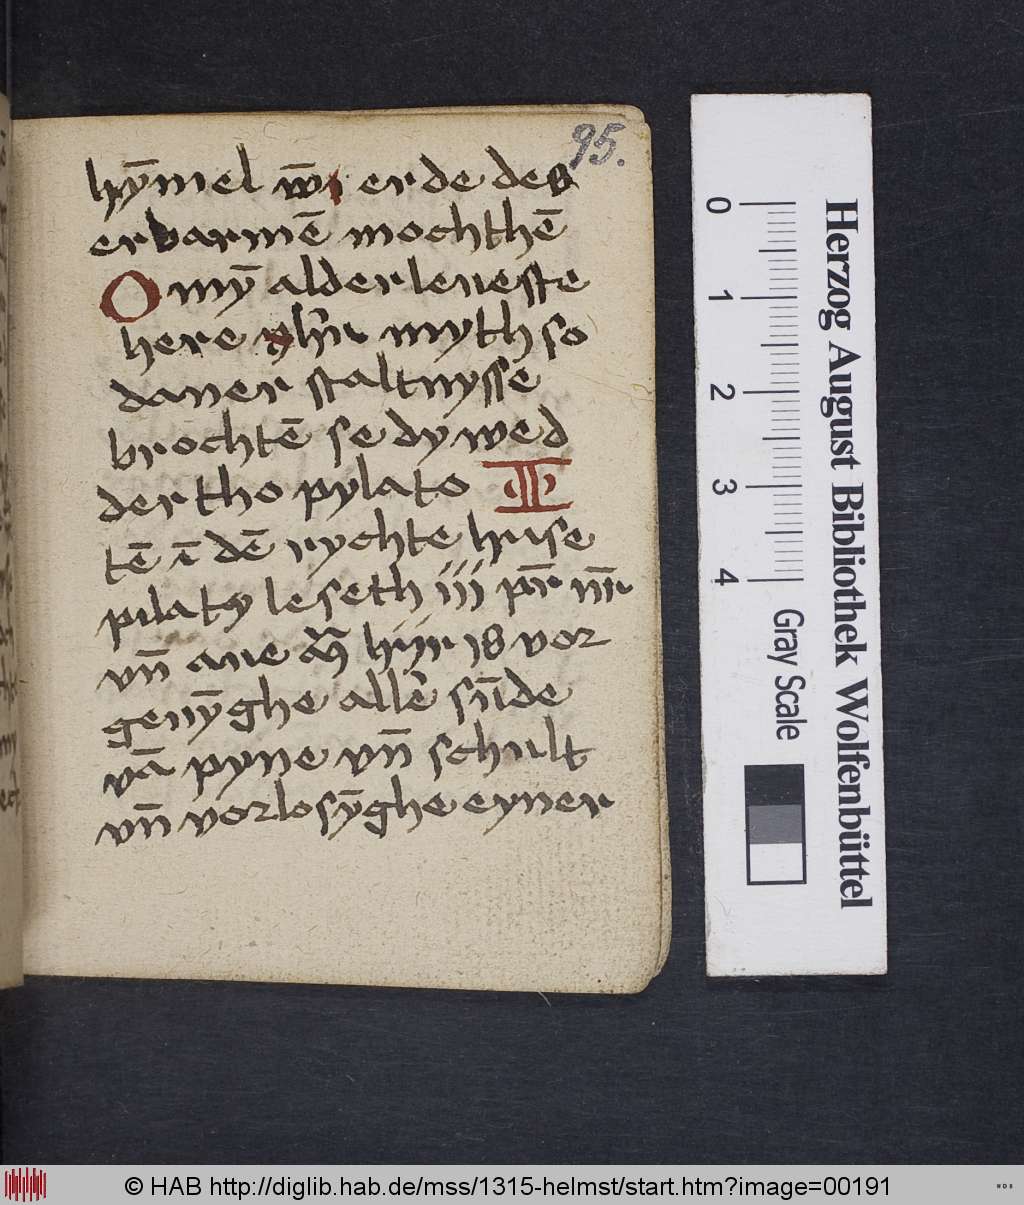 95.
hȳmel vn̄ erde des
erbarmē mochthē
O mȳ alderleueste
here yhū myth so
daner staltnysse
brochtē se dy wed
der tho pylato
tē ī dē rychte huse
pilaty leseth iij pr̄ nr̄
vn̄ aue hijr is vor
genȳghe allē sūde
vā pyne vn̄ schult
vn̄ vorlosȳghe eyner
0
1
2
3
4
Gray Scale
Herzog August Bibliothek Wolfenbüttel
© HAB http://diglib.hab.de/mss/1315-helmst/start.htm?image=00191